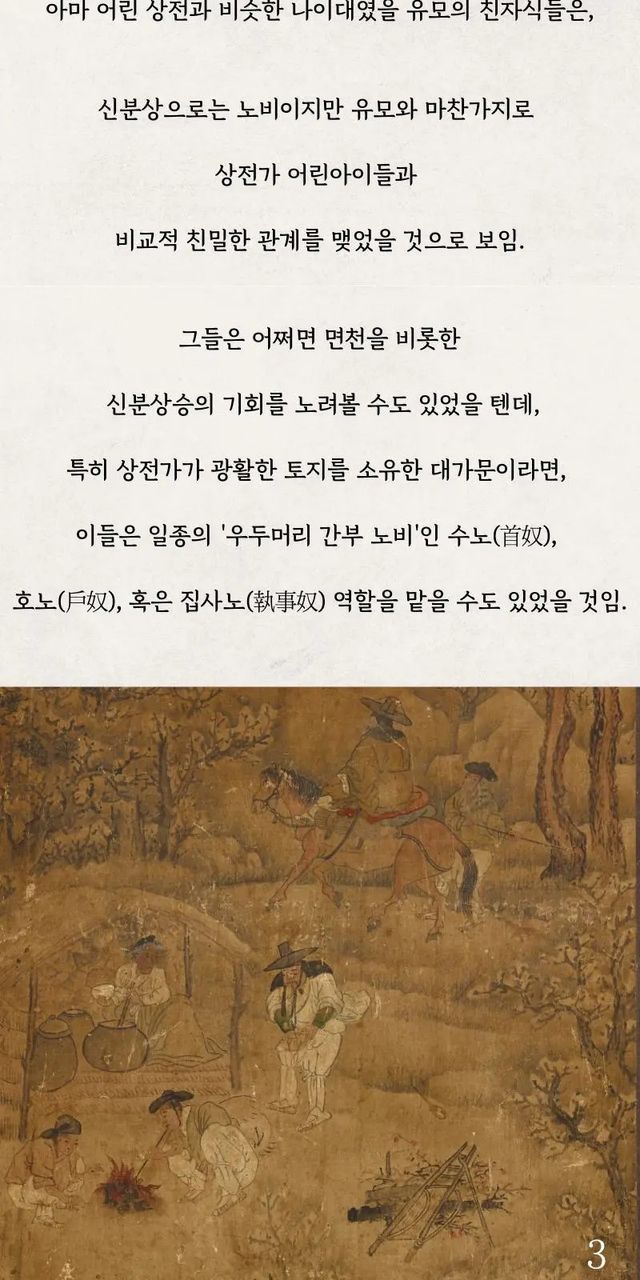 아마 어린 상전과 비슷한 나이대였을 유모의 친자식들은,
신분상으로는 노비이지만 유모와 마찬가지로
상전가 어린아이들과
비교적 친밀한 관계를 맺었을 것으로 보임.
그들은 어쩌면 면천을 비롯한
신분상승의 기회를 노려볼 수도 있었을 텐데,
특히 상전가가 광활한 토지를 소유한 대가문이라면,
이들은 일종의 '우두머리 간부 노비'인 수노(首奴),
호노(戶奴), 혹은 집사노(執事奴) 역할을 맡을 수도 있었을 것임.
3